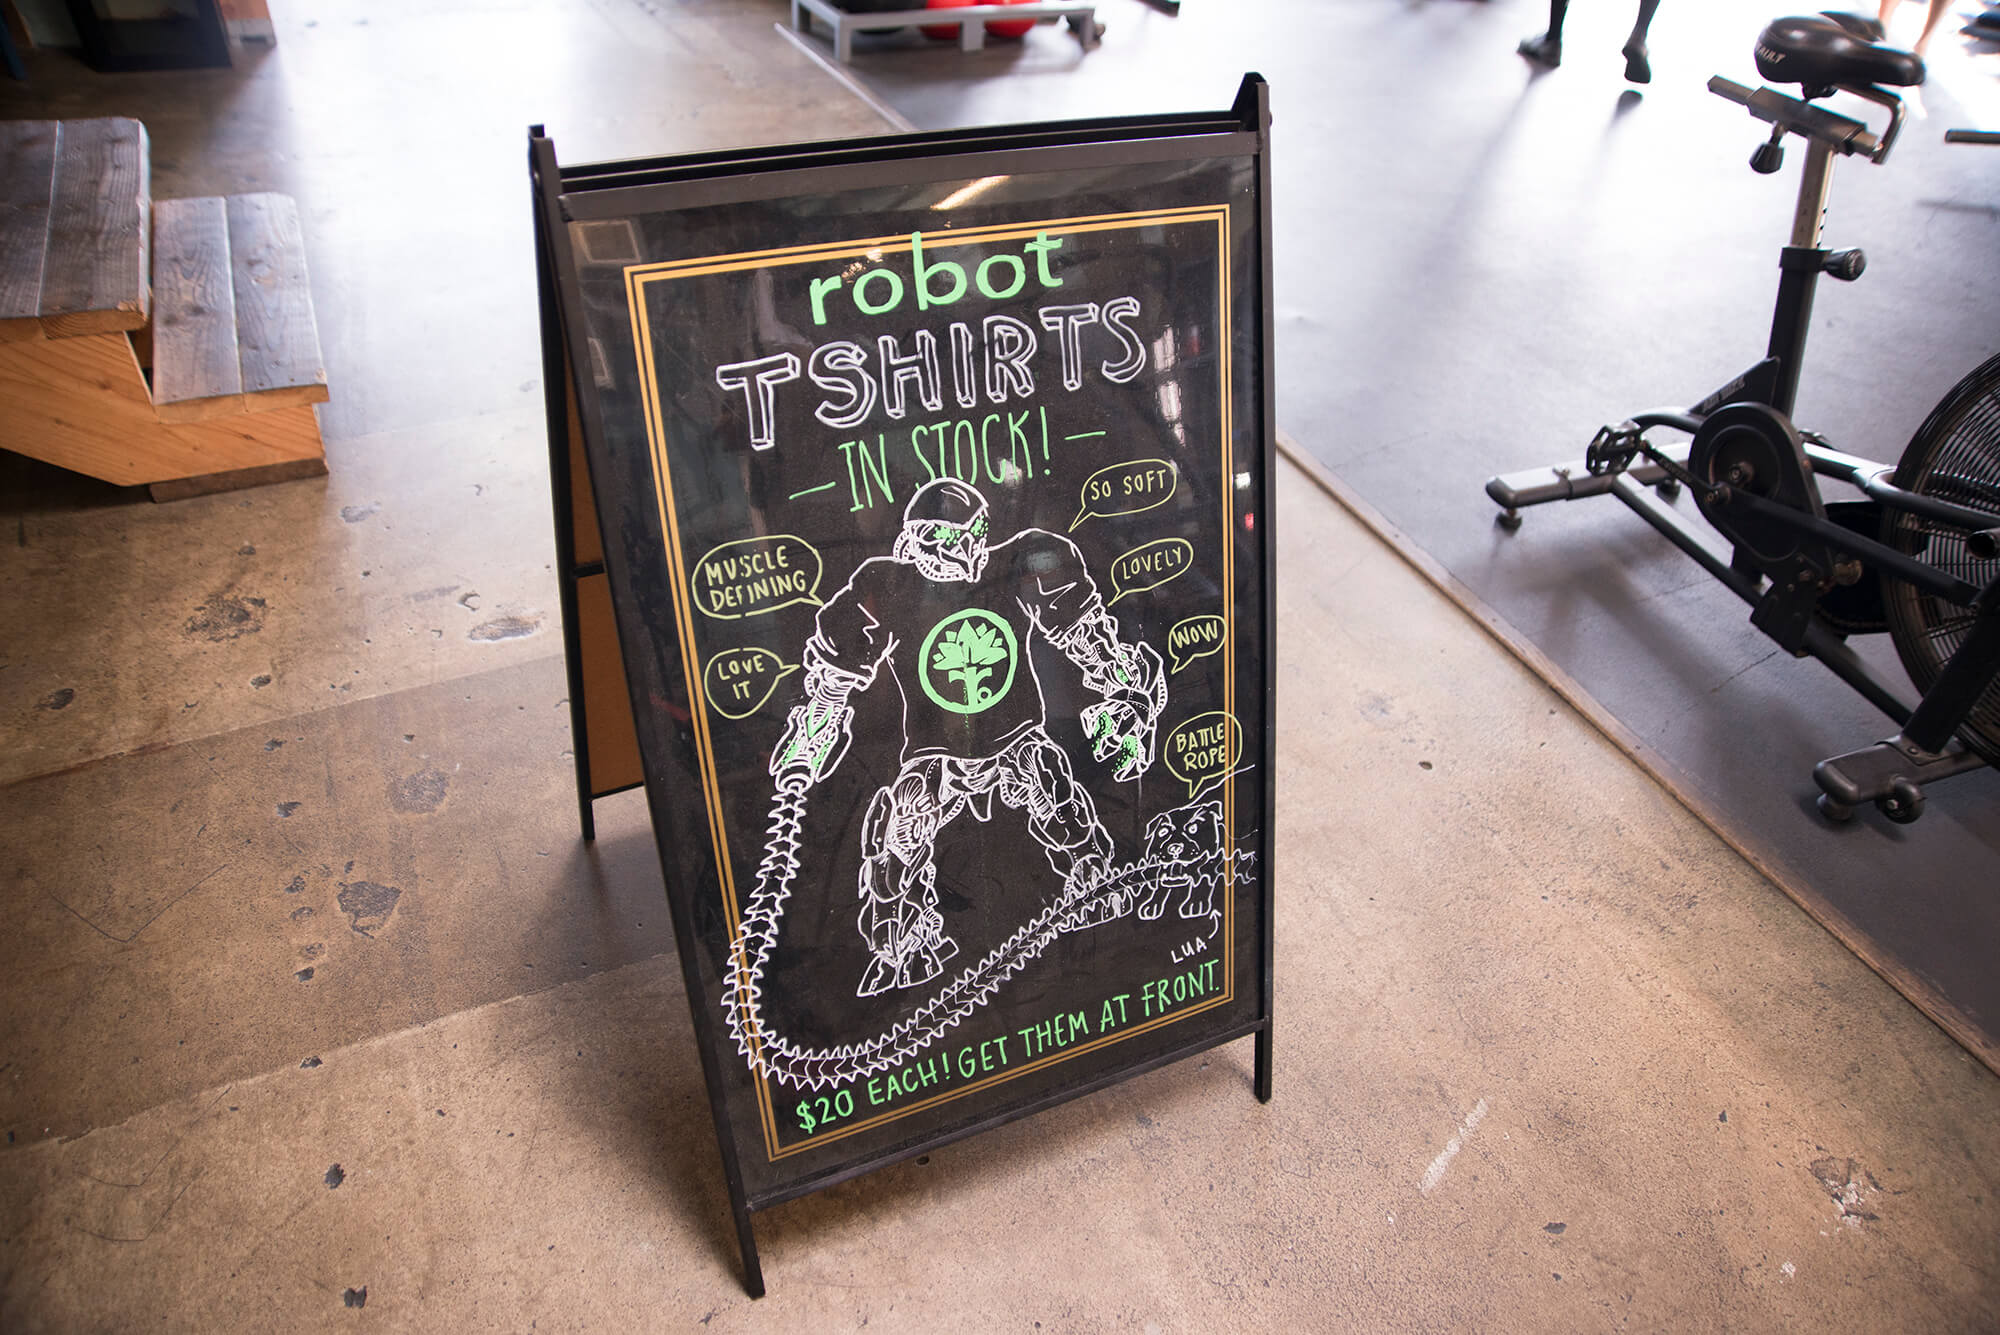 robot
TSHIRTS
—IN STOCK!—
SO SOFT
MUSCLE
DEFINING
LOVELY
LOVE
IT
WOW
BATTLE
ROPE
LUA
$20 EACH! GET THEM AT FRONT.